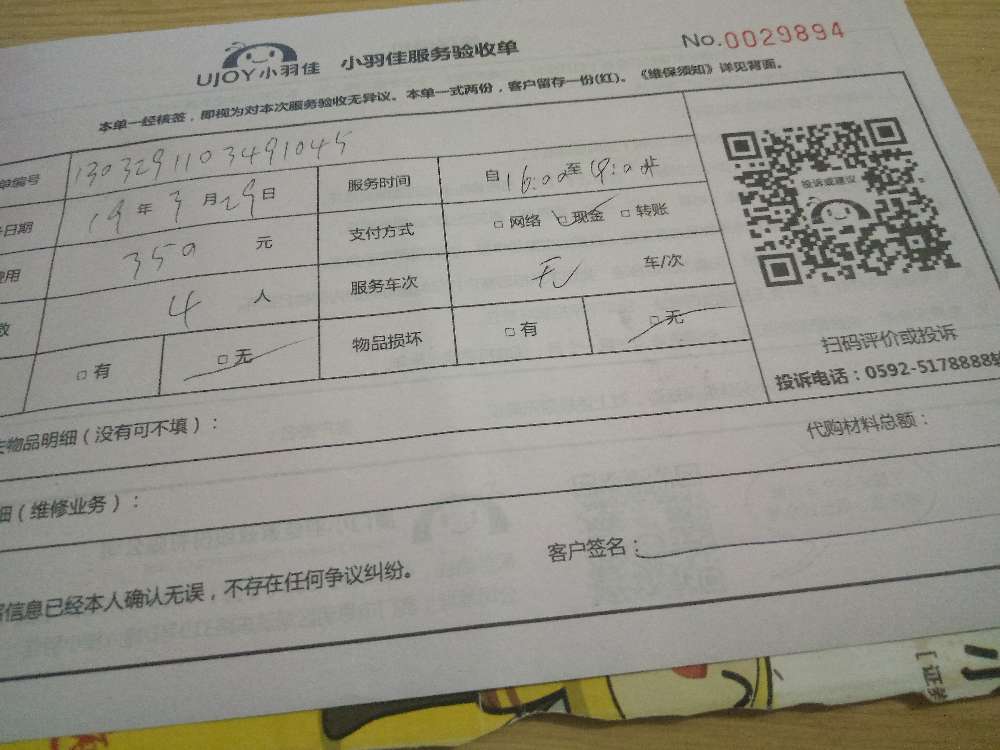 UJOY小羽佳 小羽佳服务验收单 No.0029894
本单一经核签，即视为对本次服务验收无异议。本单一式两份，客户留存一份(红)。《维保须知》详见背面。
单编号 1303291103491045
日期 19年3月29日 服务时间 自16:00至18:00止
用 350元 支付方式 □网络 □现金 □转账
数 4人 服务车次 无 车/次
□有 □无 物品损坏 □有 □无
投诉或建议
扫码评价或投诉
投诉电话：0592-5178888转
物品明细（没有可不填）：
代购材料总额：
细（维修业务）：
信息已经本人确认无误，不存在任何争议纠纷。
客户签名：
小
[证券